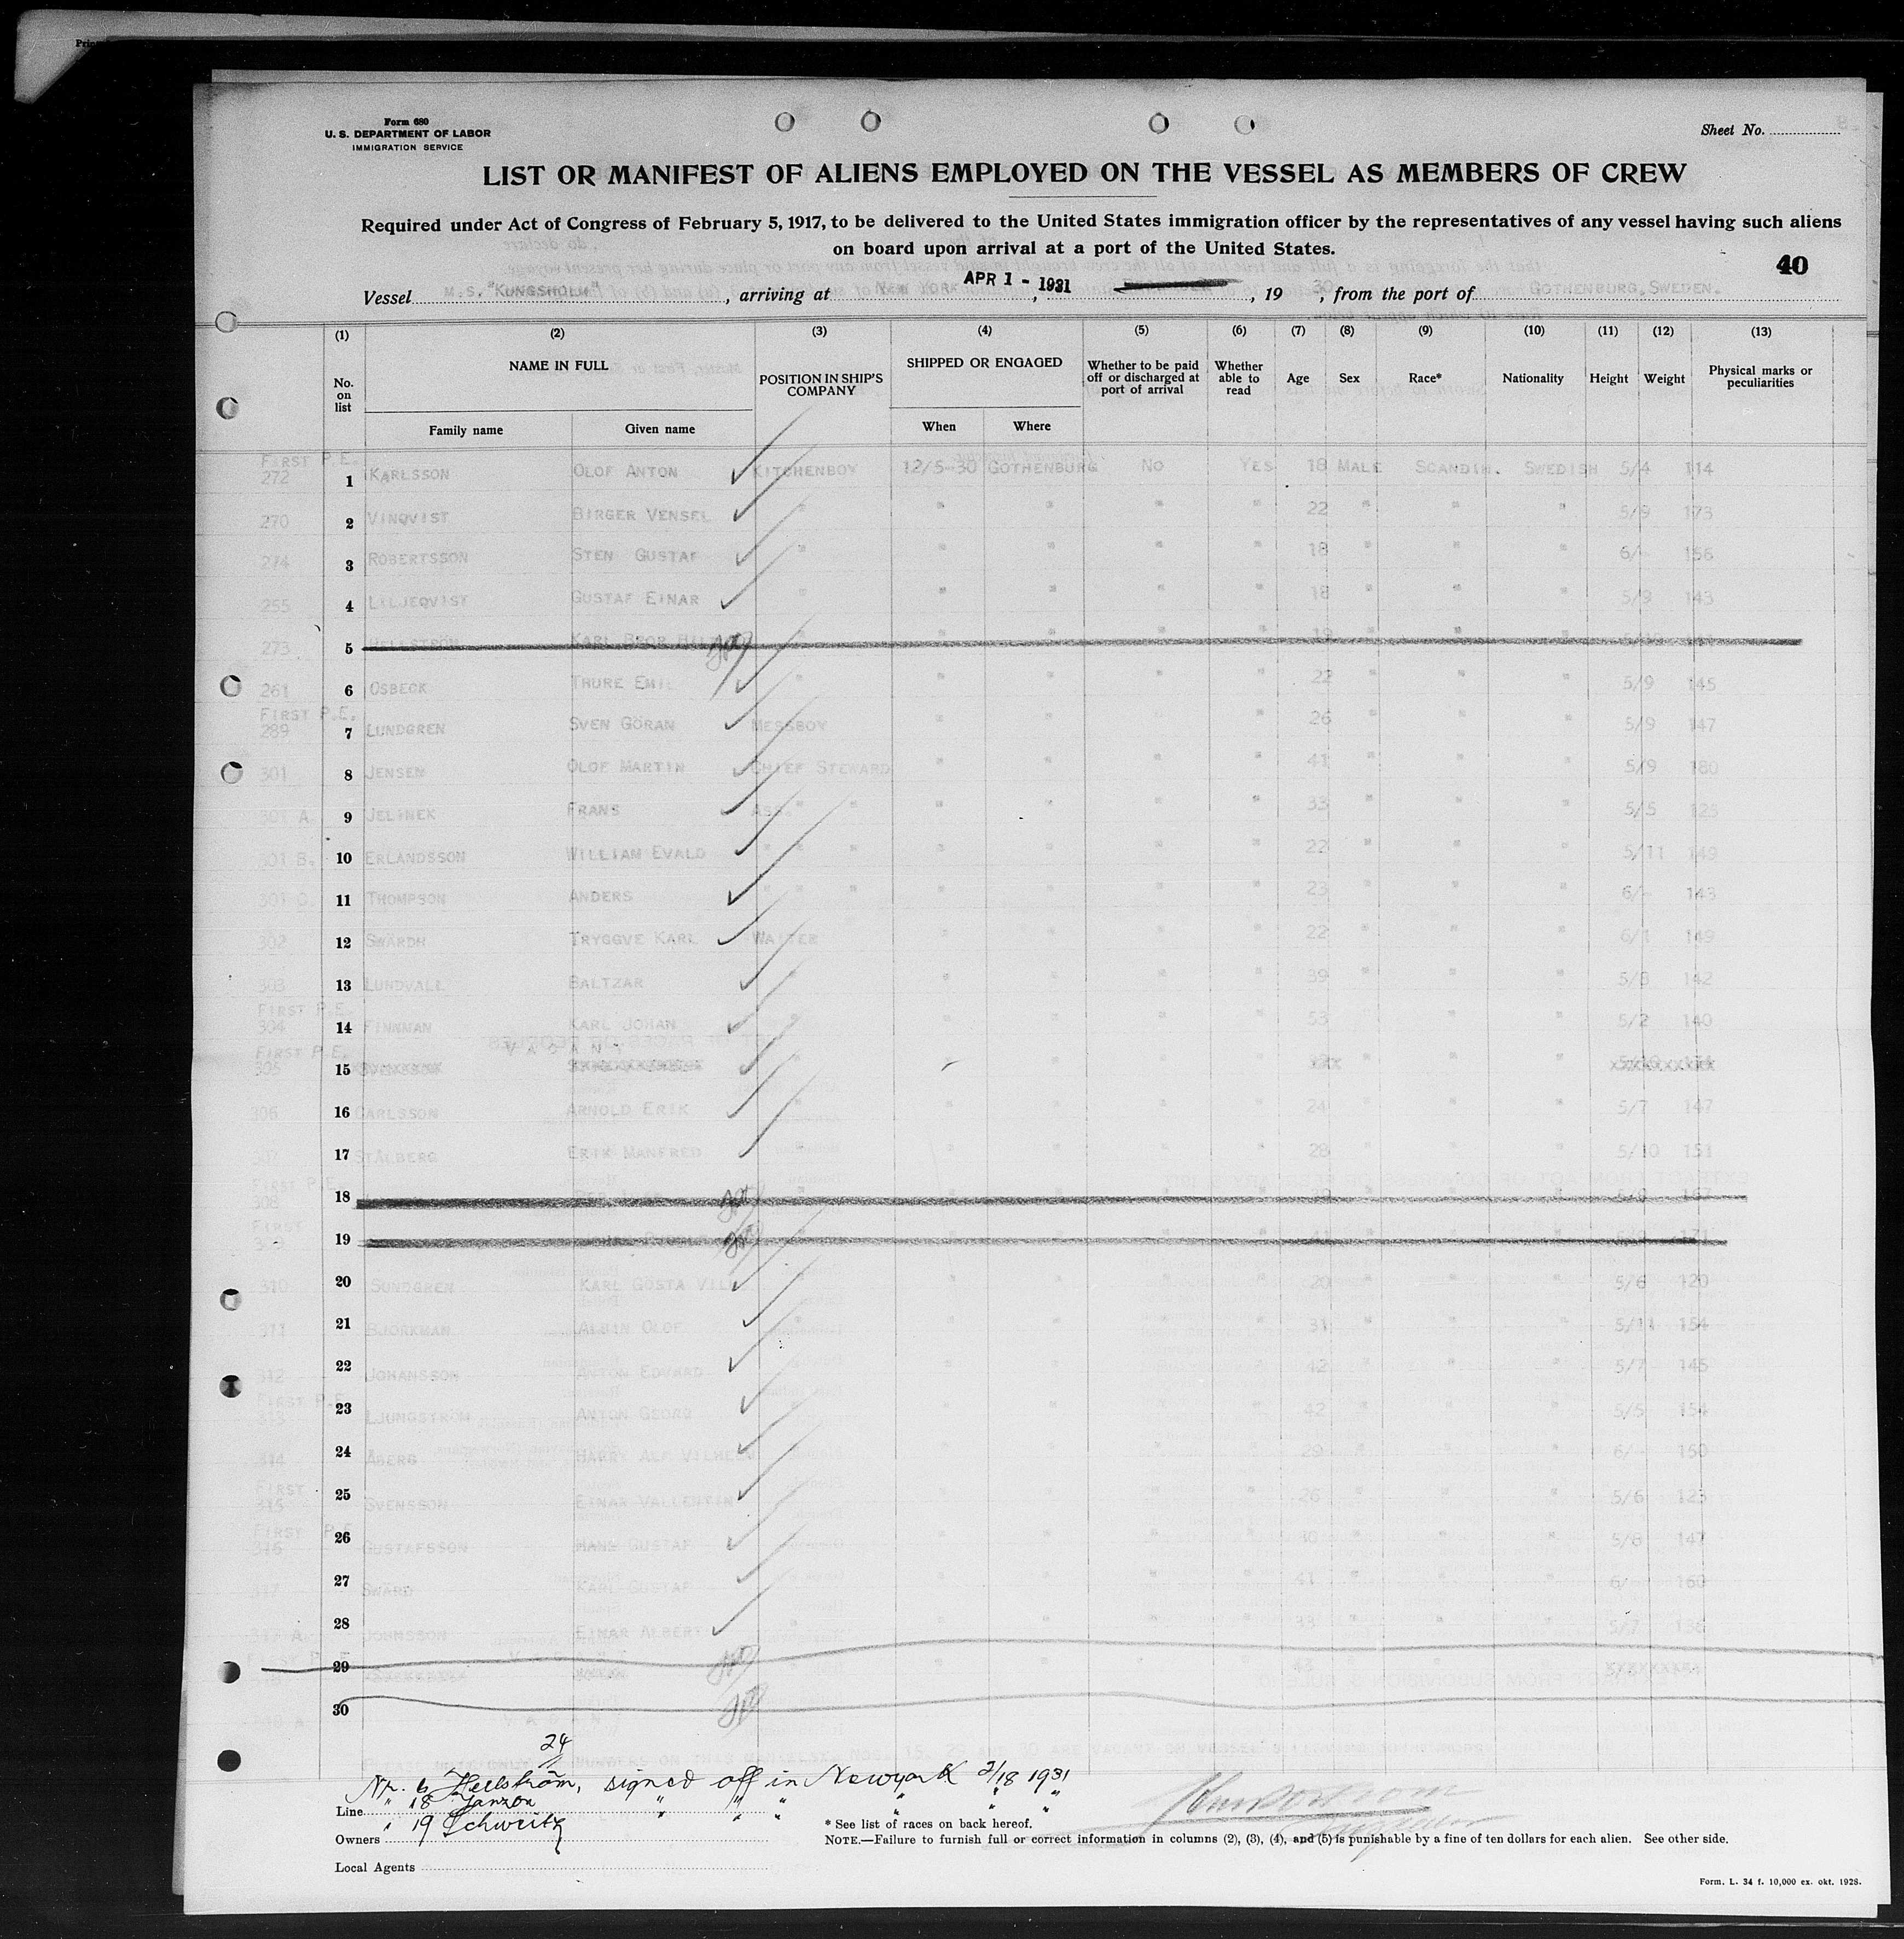 Form 680
U. S. DEPARTMENT OF LABOR
IMMIGRATION SERVICE
Sheet No.
LIST OR MANIFEST OF ALIENS EMPLOYED ON THE VESSEL AS MEMBERS OF CREW
Required under Act of Congress of February 5, 1917, to be delivered to the United States immigration officer by the representatives of any vessel having such aliens
on board upon arrival at a port of the United States.
40
Vessel M.S. "KUNGSHOLM", arriving at NEW YORK, APR 1 - 1931, 1930, from the port of GOTHENBURG, SWEDEN.
(1) (2) (3) (4) (5) (6) (7) (8) (9) (10) (11) (12) (13)
No. on list NAME IN FULL POSITION IN SHIP'S COMPANY SHIPPED OR ENGAGED Whether to be paid off or discharged at port of arrival Whether able to read Age Sex Race* Nationality Height Weight Physical marks or peculiarities
Family name Given name When Where
FIRST P.E.
272 1 KARLSSON OLOF ANTON KITCHENBOY 12/5-30 GOTHENBURG NO YES 18 MALE SCANDIN. SWEDISH 5/4 114
270 2 VINQVIST BIRGER VENSEL " " " " " 22 " " " 5/9 173
274 3 ROBERTSSON STEN GUSTAF " " " " " 18 " " " 6/- 156
255 4 LILJEQVIST GUSTAF EINAR " " " " " 18 " " " 5/9 143
273 5 HELLSTRÖM KARL BROR
261 6 OSBECK THURE EMIL " " " " " 22 " " " 5/9 145
FIRST P.E.
289 7 LUNDGREN SVEN GÖRAN MESSBOY " " " " 26 " " " 5/9 147
301 8 JENSEN OLOF MARTIN CHIEF STEWARD " " " " 41 " " " 5/9 180
301 A. 9 JELINEK FRANS ASS. " " " " " " 33 " " " 5/5 125
301 B. 10 ERLANDSSON WILLIAM EVALD " " " " " " " 22 " " " 5/11 149
301 C. 11 THOMPSON ANDERS " " " " " " " 23 " " " 6/- 143
302 12 SWÄRDH TRYGGVE KARL WAITER " " " " 22 " " " 6/1 149
303 13 LUNDVALL BALTZAR " " " " " 39 " " " 5/8 142
FIRST P.E.
304 14 FINNMAN KARL JOHAN " " " " " 53 " " " 5/2 140
FIRST P.E. VACANT
305 15
306 16 CARLSSON ARNOLD ERIK " " " " " 24 " " " 5/7 147
307 17 STÅLBERG ERIK MANFRED " " " " " 28 " " " 5/10 151
FIRST P.E.
308 18
FIRST
19
310 20 SUNDGREN KARL GÖSTA VILH " " " " " 20 " " " 5/6 120
311 21 BJÖRKMAN ALBIN OLOF " " " " " 31 " " " 5/11 154
312 22 JOHANSSON ANTON EDVARD " " " " " 42 " " " 5/7 145
FIRST P.E.
313 23 LJUNGSTRÖM ANTON GEORG " " " " " 42 " " " 5/5 154
314 24 ÅBERG HARRY ALF VILHELM " " " " " 29 " " " 6/- 150
FIRST
315 25 SVENSSON EINAR VALLENTIN " " " " " 26 " " " 5/6 123
FIRST P.E.
316 26 GUSTAFSSON HANS GUSTAF " " " " " " " " 5/8 147
317 27 SWÄRD KARL GUSTAF " " " " " 41 " " " 6/- 160
317 A. 28 JOHNSSON EINAR ALBERT " " " " " 33 " " " 5/7
29
30
24
Nr. 6 Hellström, signed off in Newyork 2/18 1931
" 18 Janzon " " " " " "
" 19 Schweitz
Line
Owners
Local Agents
* See list of races on back hereof.
NOTE.—Failure to furnish full or correct information in columns (2), (3), (4), and (5) is punishable by a fine of ten dollars for each alien. See other side.
Form. L. 34 f. 10,000 ex. okt. 1928.